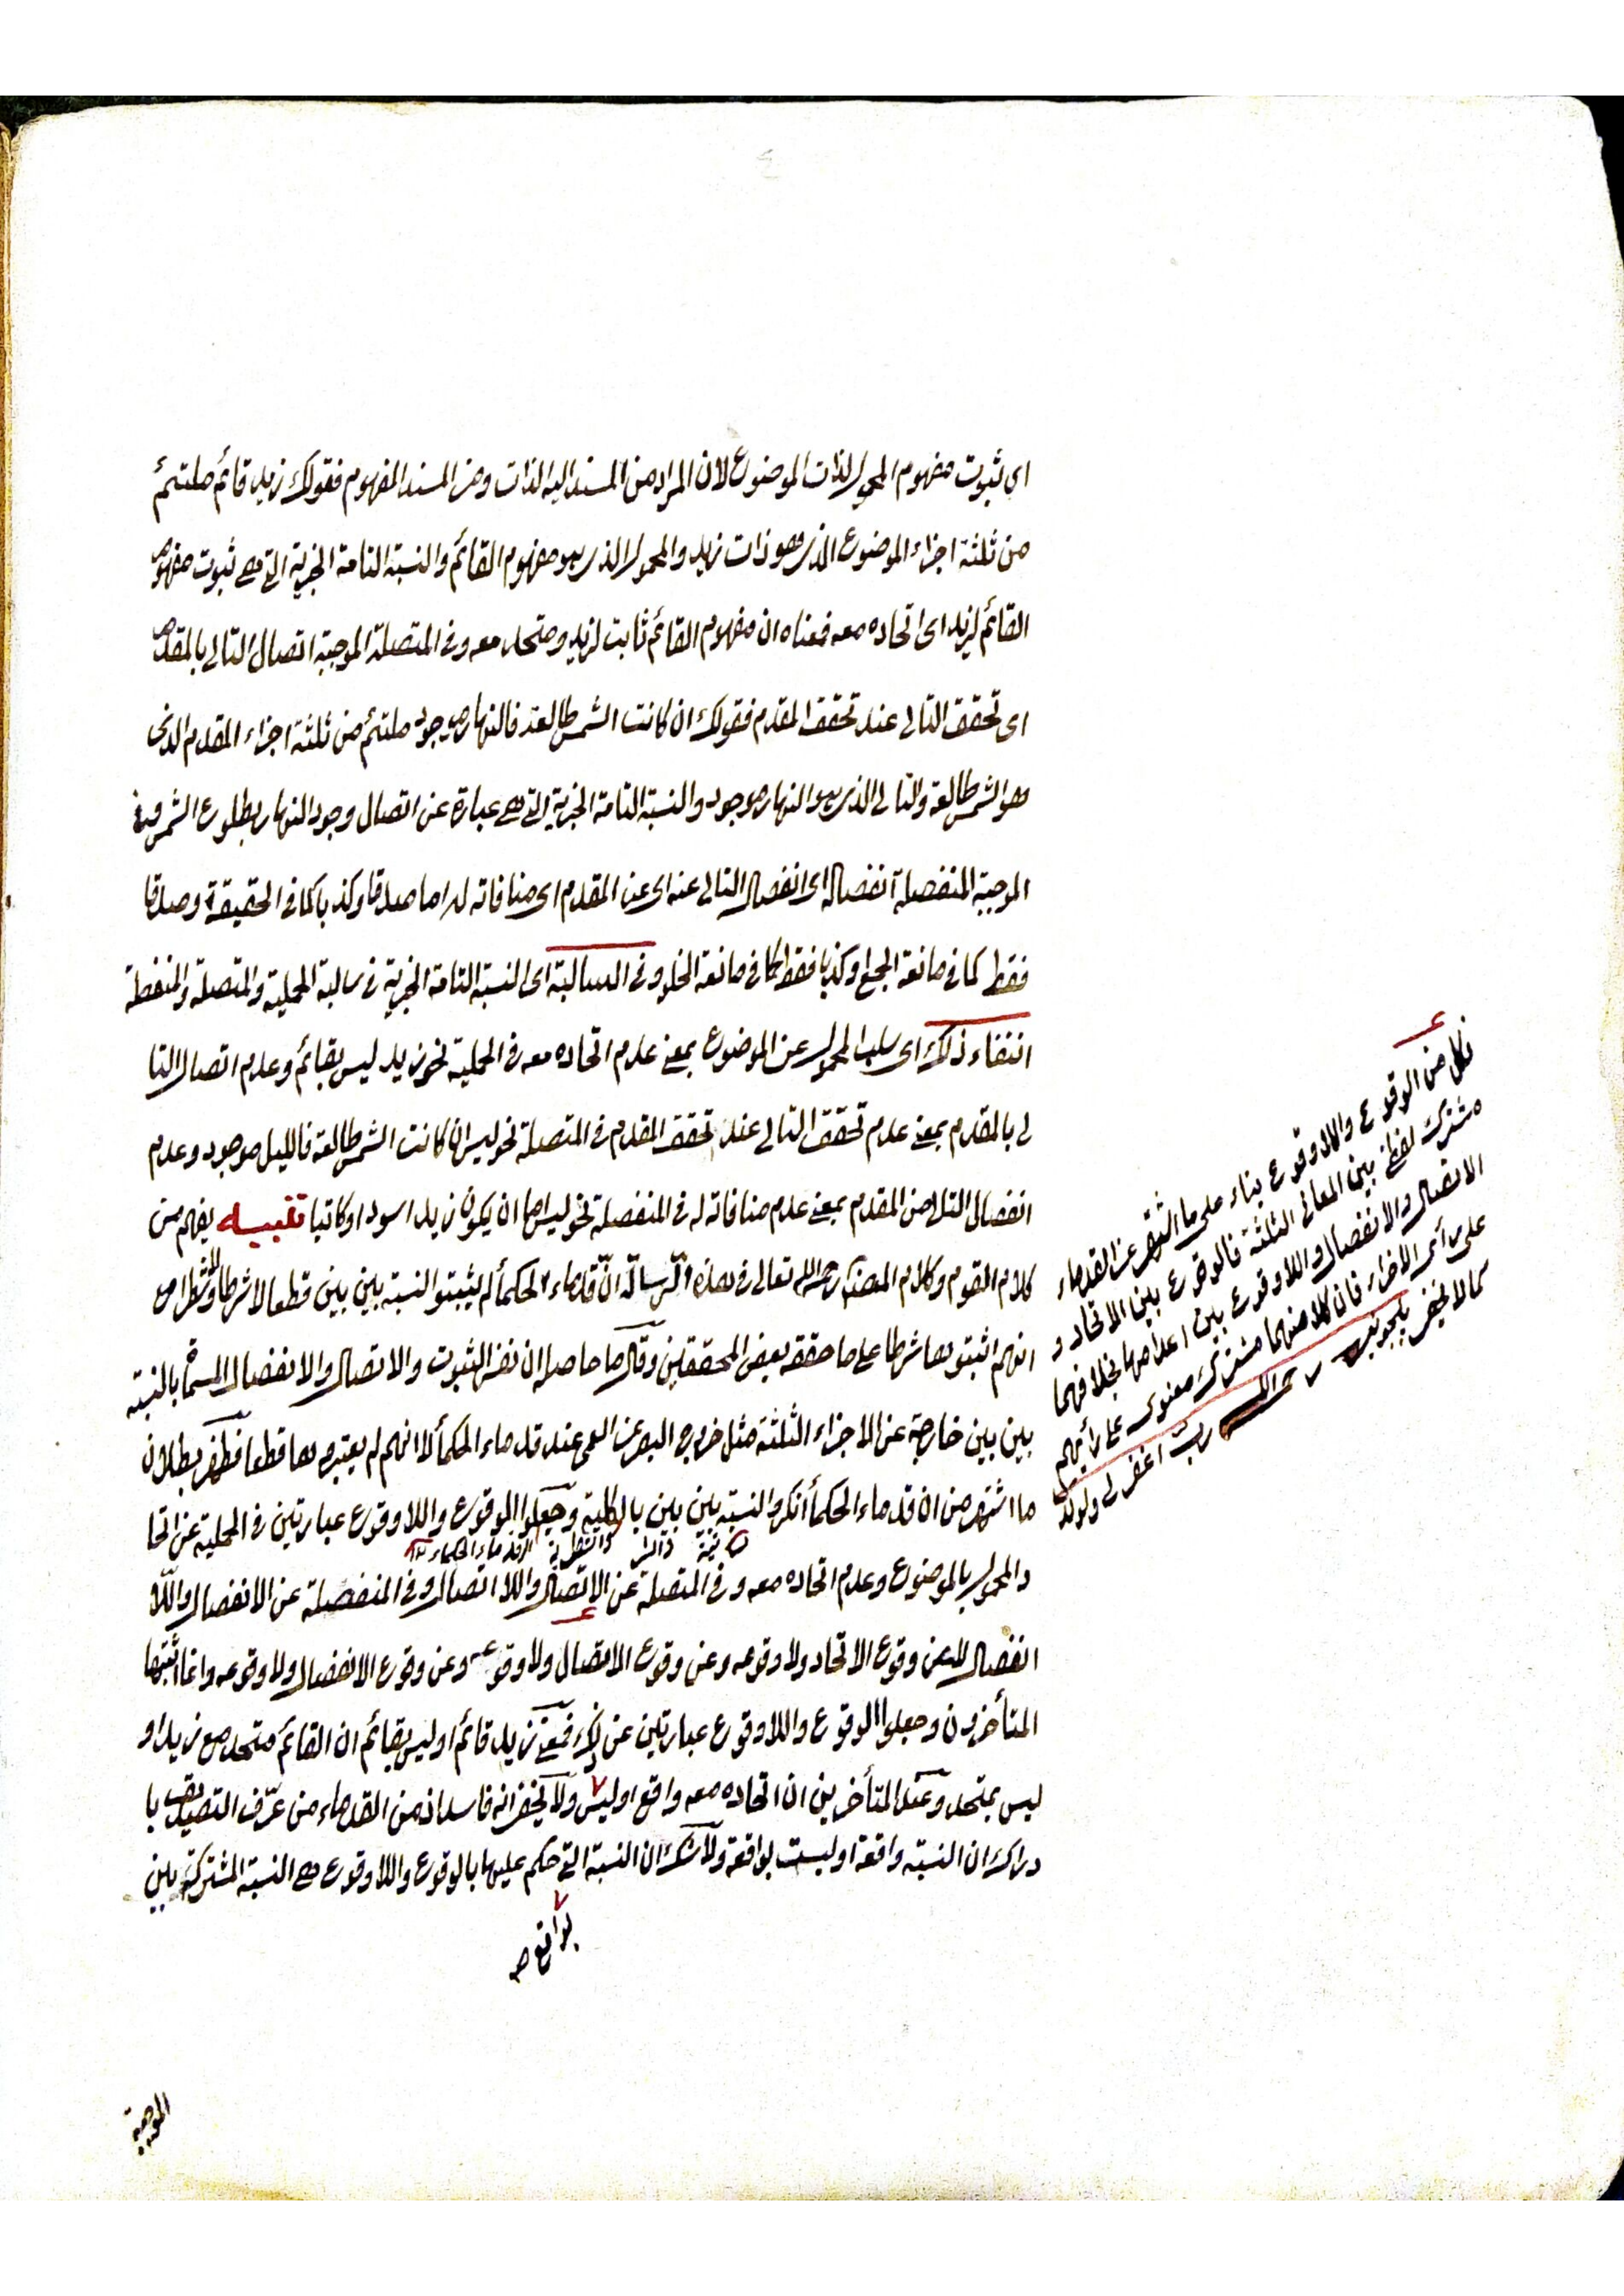 اي ثبوت مفهوم المحمول لذات الموضوع لان المراد من المسند اليه الذات ومن المسند المفهوم فقولك زيد قائم ملتئم
من ثلثة اجزاء الموضوع الذى هو ذات زيد والمحمول الذى هو مفهوم القائم والنسبة التامة الخبرية التى هى ثبوت مفهوم
القائم لزيد اى اتحاده معه فمعناه ان مفهوم القائم ثابت لزيد ومتحد معه وفى المتصلة الموجبة اتصال التالى بالمقدم
اى تحقق التالى عند تحقق المقدم فقولك ان كانت الشمس طالعة فالنهار موجود ملتئم من ثلثة اجزاء المقدم الذى
هو الشمس طالعة والتالى الذى هو النهار موجود والنسبة التامة الخبرية التى هى عبارة عن اتصال وجود النهار بطلوع الشمس وفى
الموجبة المنفصلة انفصاله اى انفصال التالى عنه اى عن المقدم اى منافاته له اما صدقا وكذبا كما فى الحقيقة وصدقا
فقط كما فى مانعة الجمع او كذبا فقط كما فى مانعة الخلو وفى السالبة اى النسبة التامة الخبرية فى سالبة الحملية والمتصلة والمنفصلة
انتفاء ذلك اى سلب المحمول عن الموضوع بمعنى عدم اتحاده معه فى الحملية نحو زيد ليس بقائم وعدم اتصال التا
لى بالمقدم بمعنى عدم تحقق التالى عند تحقق المقدم فى المتصلة نحو ليس ان كانت الشمس طالعة فالليل موجود وعدم
انفصال التالى من المقدم بمعنى عدم منافاته له فى المنفصلة نحو ليس اما ان يكون زيد اسود او كاتبا تنبيه يفهم من
كلام القوم وكلام المصنف رحمه الله تعالى فى هذه الرسالة ان قدماء الحكمأ لم يثبتوا النسبة بين بين قطعا لا شرطا ولا شطرا مع
انهم اثبتوها شرطا على ما حققه بعض المحققين وقال ما حاصله ان نفس الثبوت والاتصال والانفصال المسمى بالنسبة
بين بين خارجة عن الاجزاء الثلثة مثل خروج البصر عن العمى عند قدماء الحكمأ لا انهم لم يعتبروها قطعا فظهر بطلان
ما اشتهر من ان قدماء الحكمأ انكروا النسبة بين بين بالكلية وجعلوا الوقوع واللاوقوع عبارتين فى الحملية عن اتحا
د المحمول بالموضوع وعدم اتحاده معه وفى المتصلة عن الاتصال واللا اتصال وفى المنفصلة عن الانفصال واللا
انفصال لا عن وقوع الاتحاد ولا وقوعه وعن وقوع الاتصال ولا وقوعه وعن وقوع الانفصال ولا وقوعه وانما اثبتها
المتأخرون وجعلوا الوقوع واللاوقوع عبارتين عن ذلك فمعنى زيد قائم او ليس بقائم ان القائم متحد مع زيد او
ليس بمتحد وعند المتأخرين ان اتحاده معه واقع او ليس ولا يخفى انه فاسد اذ من القدماء من عرّف التصديق با
دراك ان النسبة واقعة او ليست بواقعة ولا شك ان النسبة التى حكم عليها بالوقوع واللاوقوع هى النسبة المشتركة بين
بواقع صح
الموجبة
فكل من الوقوع واللاوقوع بناء على ما اشتهر عن القدماء
مشترك لفظى بين المعانى الثلثة فالوقوع بين الاتحاد و
الاتصال والانفصال واللاوقوع بين اعدامها بخلافهما
على رأى الاخراء فان كلا منهما مشترك معنوى على رأيهم
كما لا يخفى رحمه الله
رب اغفر لى ولوالد